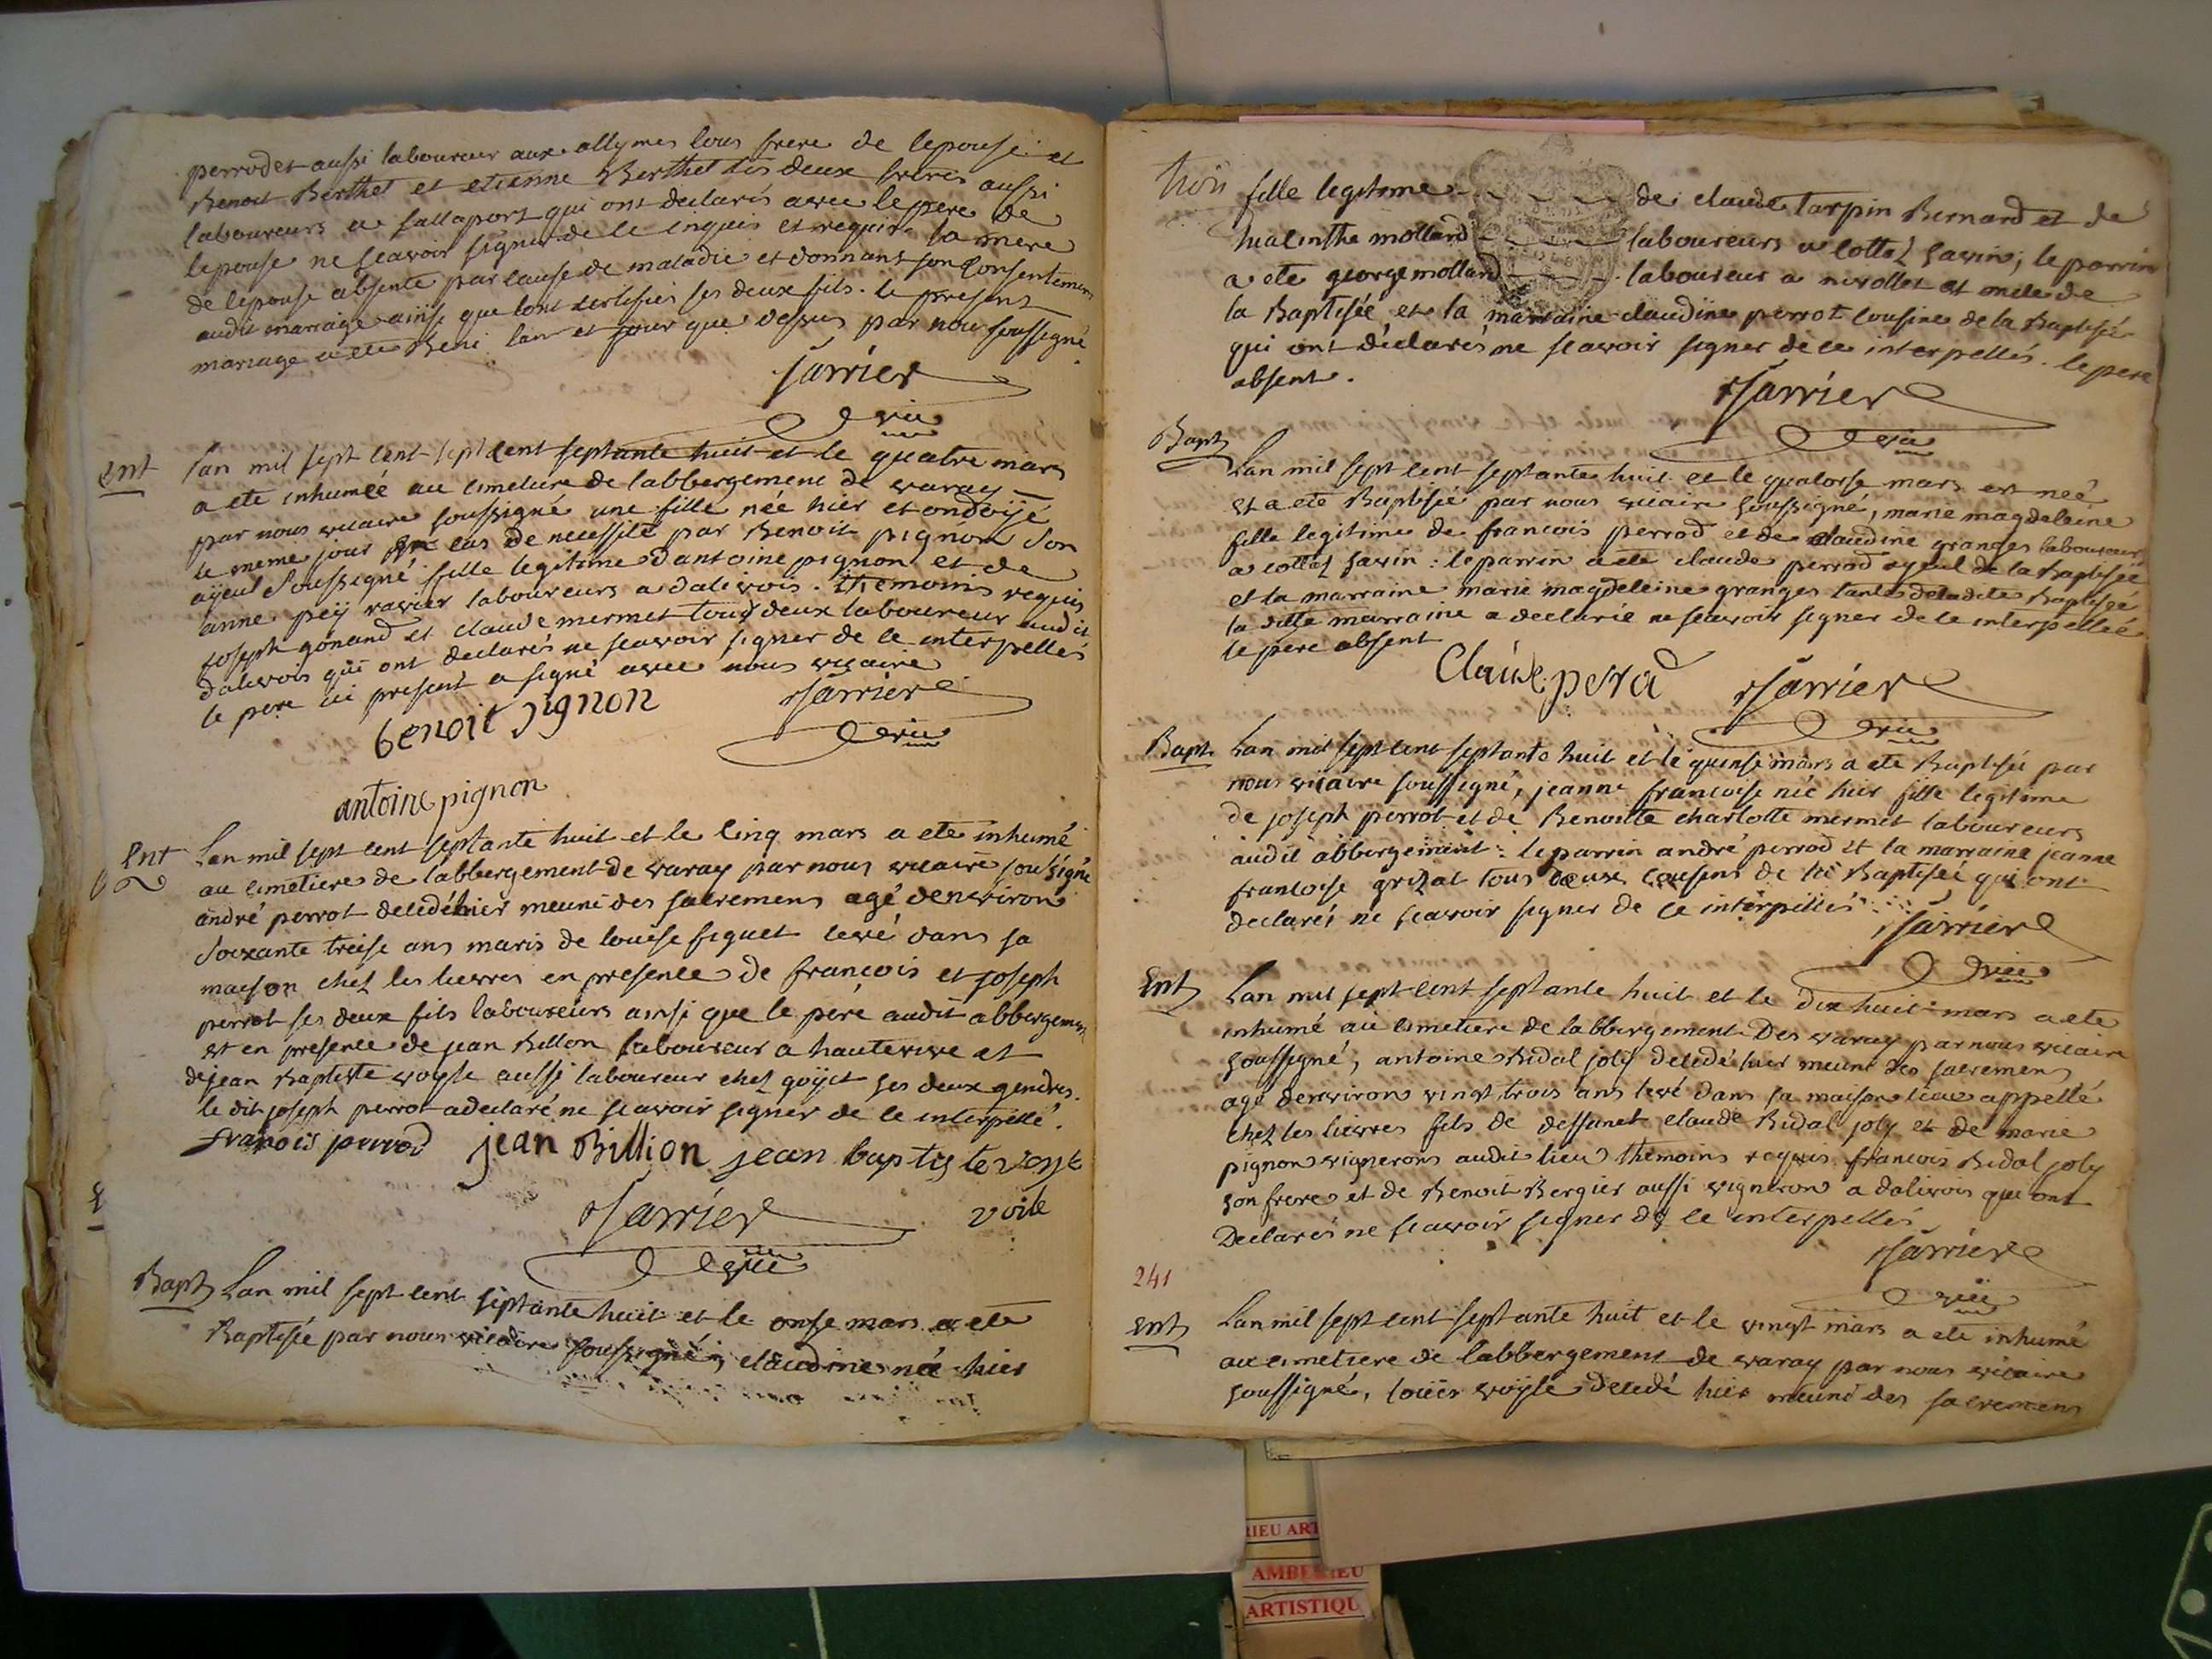 perrodet aussi laboureur aux allymes tous frere de lepouse et
Benoit Berthet et etienne Berthet les deux freres aussi
laboureurs a sallaport qui ont declarés avec le pere de
lepouse ne scavoir signer de ce enquis et requis. la mere
de lepouse absente par cause de maladie et donnant son consentement
audit mariage ainsi que lont certifiés ses deux fils. le present
mariage a ete Beni lan et jour que dessus par nou soussigné.
Sarrier
vic
Ent
lan mil sept cent sept cent septante huit et le quatre mars
a ete inhumée au cimetiere de labbergement de varay
par nous vicaire soussigné une fille née hier et ondoijé
le meme jour en cas de necessité par Benoit pignon son
ayeul soussigné fille legitime dantoine pignon et de
anne pëy ravier laboureurs a dalivois. themoins requis
joseph gonand et claude mermet tous deux laboureur audit
dalivois qui ont declarés ne scavoir signer de ce interpellés
le pere ici present a signé avec nous vicaire
benoit pignon
Sarrier
vic
antoine pignon
Ent
Lan mil sept cent septante huit et le cinq mars a ete inhumé
au cimetiere de labbergement de varay par nous vicaire soussigné
andré perrot decedé hier meuni des sacremens agé denviron
soixante treise ans maris de louise fiquet levé dans sa
maison chéz les lievres en presence de francois et joseph
perrot ses deux fils laboureurs ainsi que le pere audit abbergement
et en presence de jean Billon laboureur a hauterive et
de jean Baptiste voyle aussi laboureur chez goÿet ses deux gendres.
le dit joseph perrot a declaré ne scavoir signer de ce interpellé.
franois perrod jean Billion jean baptiste voyle
Sarrier
voile
vic
Bapt
Lan mil sept cent septante huit et le onse mars a ete
Baptisée par nous vicaire soussigné, claudine née hier
trois
fille legitime de claude tarpin Bernard et de
hiacinthe mollard laboureurs a cottez savin; le parrin
a ete george mollard laboureur a nivollet et oncle de
la Baptisée et la marraine claudine perrot cousine de la Baptisée
qui ont déclarés ne scavoir signer de ce interpellés. le pere
absent.
Sarrier
vic
Bapt
Lan mil sept cent septante huit et le quatorse mars est neé
et a ete Baptisée par nous vicaire soussigné, marie magdeleine
fille legitime de francois perrod et de claudine granger laboureurs
a cottez savin: le parrin a ete claude perrod ayeul de la Baptisée
et la marraine marie magdeleine granger tante de ladite Baptisée
la ditte marraine a declarée ne scavoir signer de ce interpellée
le pere absent
Claude perrod
Sarrier
vic
Bapt.
Lan mil sept cent septante huit et le quinse mars a ete Baptisée par
nous vicaire soussigné, jeanne francoise née hier fille legitime
de joseph perrot et de Benoite charlotte mermet laboureurs
audit abbergement: le parrin andré perrod et la marraine jeanne
francoise grizat tous deux cousins de la Baptisée qui ont
declarés ne scavoir signer de ce interpellés
Sarrier
vic
Ent
Lan mil sept cent septante huit et le dix huit mars a ete
inhumé au cimetiere de labbergement Des varay par nous vicaire
soussigné, antoine Bidal joly decedé hier meuni des sacremens
agé denviron vingt trois ans levé dans sa maison lieu appellé
chez les lievres fils de deffunt claude Bidal joly et de marie
pignon vignerons audit lieu themoins requis francois Bidal joly
son frere et de Benoit Bergier aussi vigneron a dalivois qui ont
Declarés ne scavoir signer de ce interpellés
Sarrier
vic
241
Ent
Lan mil sept cent septante huit et le vingt mars a ete inhumé
au cimetiere de labbergement de varay par nous vicaire
soussigné, loüis voÿle decedé hier meuni des sacremens
RIEU ART
AMBERIEU
ARTISTIQU